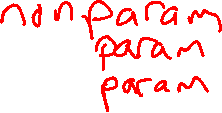 nonparam
param
param